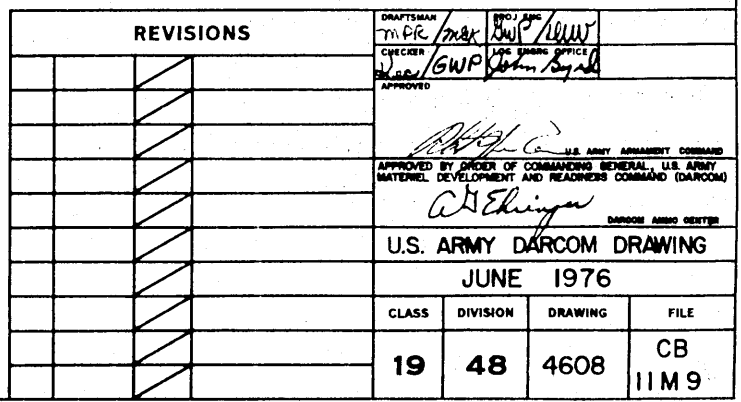 REVISIONS
DRAFTSMAN
MPR
PROJ ENG
GWP
CHECKER
GWP
LOG ENGRG OFFICE
John Byrd
APPROVED
U.S. ARMY ARMAMENT COMMAND
APPROVED BY ORDER OF COMMANDING GENERAL, U.S. ARMY
MATERIEL DEVELOPMENT AND READINESS COMMAND (DARCOM)
DARCOM AMMO CENTER
U.S. ARMY DARCOM DRAWING
JUNE 1976
CLASS DIVISION DRAWING FILE
19 48 4608 CB
11M9